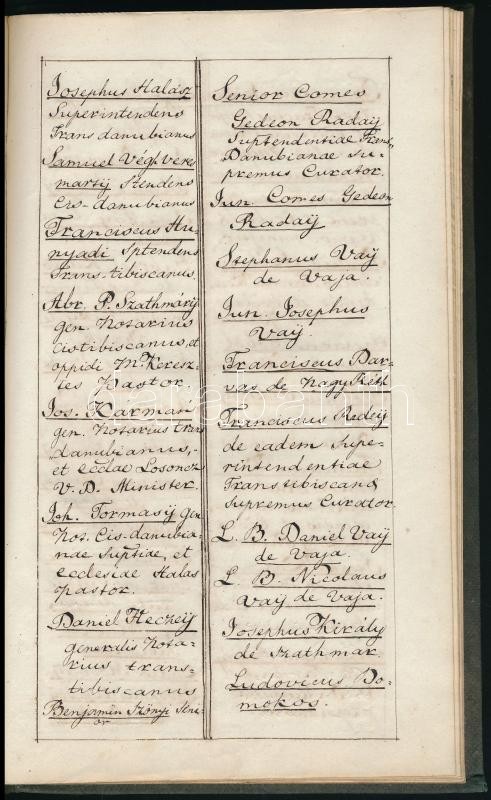 Josephus Halász
Superintendens
Transdanubianus
Samuel Végh veres
martij Stendens
Cis-danubianus
Franciscus Hu-
nyadi Sptendens
Trans-tibiscanus
Abr. P. Szathmárÿ
gen. Notarius
cistibiscanus, et
oppidi M. Keresz-
tes Pastor
Jos. Karman
gen. Notarius trans
danubianus,-
et ecclae Losoncz
V. D. Minister.
Joh. Tormasÿ gen
Not. Cis-danubia-
nae Suptiae, et
ecclesiae Halas
pastor.
Daniel Heczeÿ
generalis Nota-
rius trans-
tibiscanus
Benjamin Szőnyi Seni-
or
Senior Comes
Gedeon Radaÿ
Suptendentiae Trans-
Danubianae su-
premus Curator.
Jun. Comes Gedeon
Radaÿ
Stephanus Vaÿ
de Vaja.
Jun. Josephus
Vaÿ.
Franciscus Dar-
vas de Nagy Réth
Franciscus Redeÿ
de eadem Supe-
rintendentiae
Transtibiscanae
Supremus Curator.
L. B. Daniel Vaÿ
de Vaja.
L. B. Nicolaus
Vaÿ de Vaja.
Josephus Király
de Szathmar
Ludovicus Do-
mokos.
darabanth